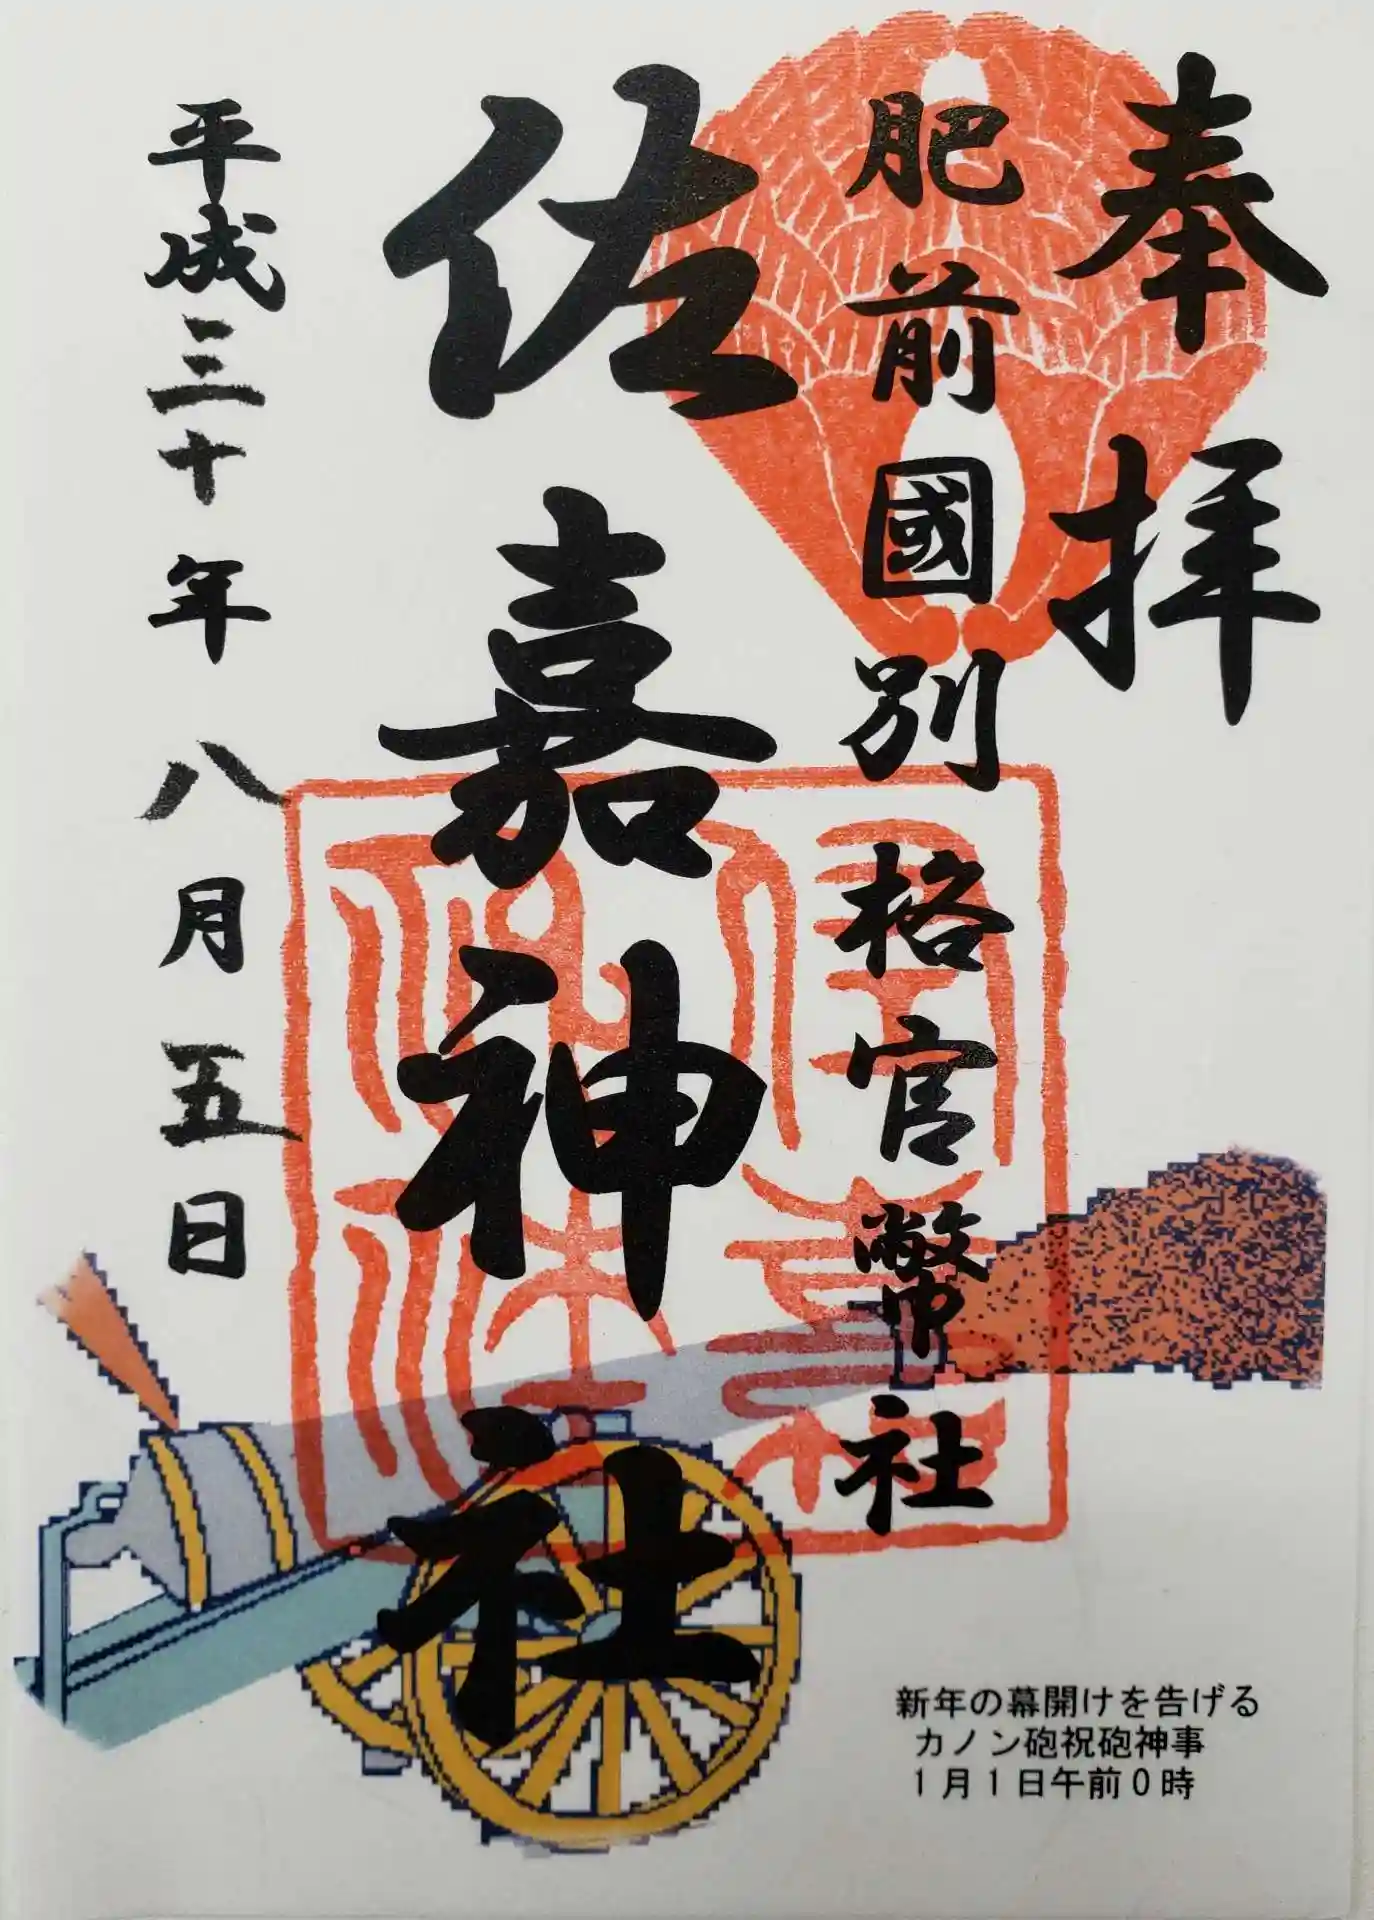 奉拝
肥前國別格官幣社
佐嘉神社
平成三十年八月五日
新年の幕開けを告げる
カノン砲祝砲神事
1月1日午前0時